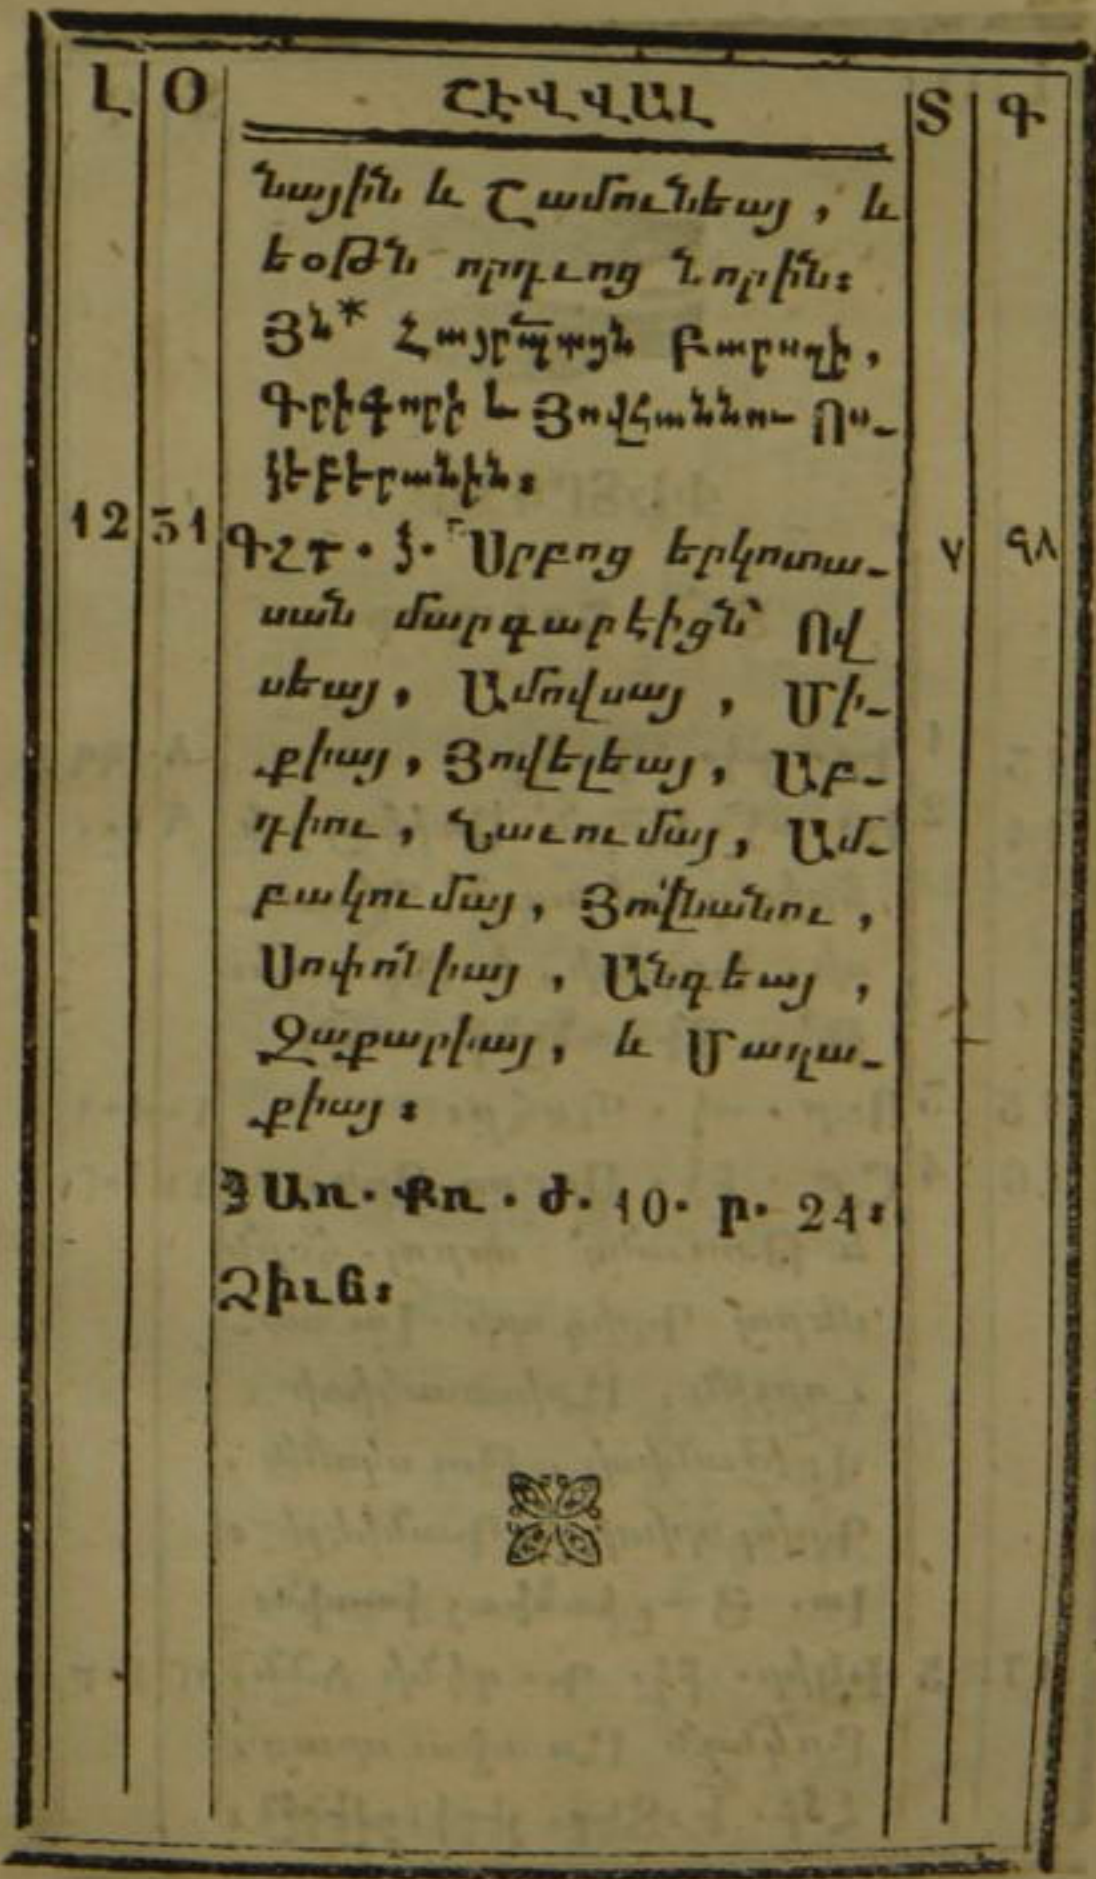 Լ Օ ՇԷՎՎԱԼ Տ Գ
նային և Շամունեայ, և
եօթն որդւոց նորին։
Յն* Հայրապտցն Բարսղի,
Գրիգորի և Յովհաննու Ոս-
կեբերանին։
12 31 Գշտ. կ. Սրբոց երկոտա- ٧ ٩٨
սան մարգարէիցն՝ Ով
սեայ, Ամովսայ, Մի-
քիայ, Յովելեայ, Աբ-
դիու, Նաւումայ, Ամ-
բակումայ, Յովնանու,
Սոփոնիայ, Անգեայ,
Զաքարիայ, և Մաղա-
քիայ։
Առ. Քռ. Ժ. 10. ր. 24։
Ձիւն։